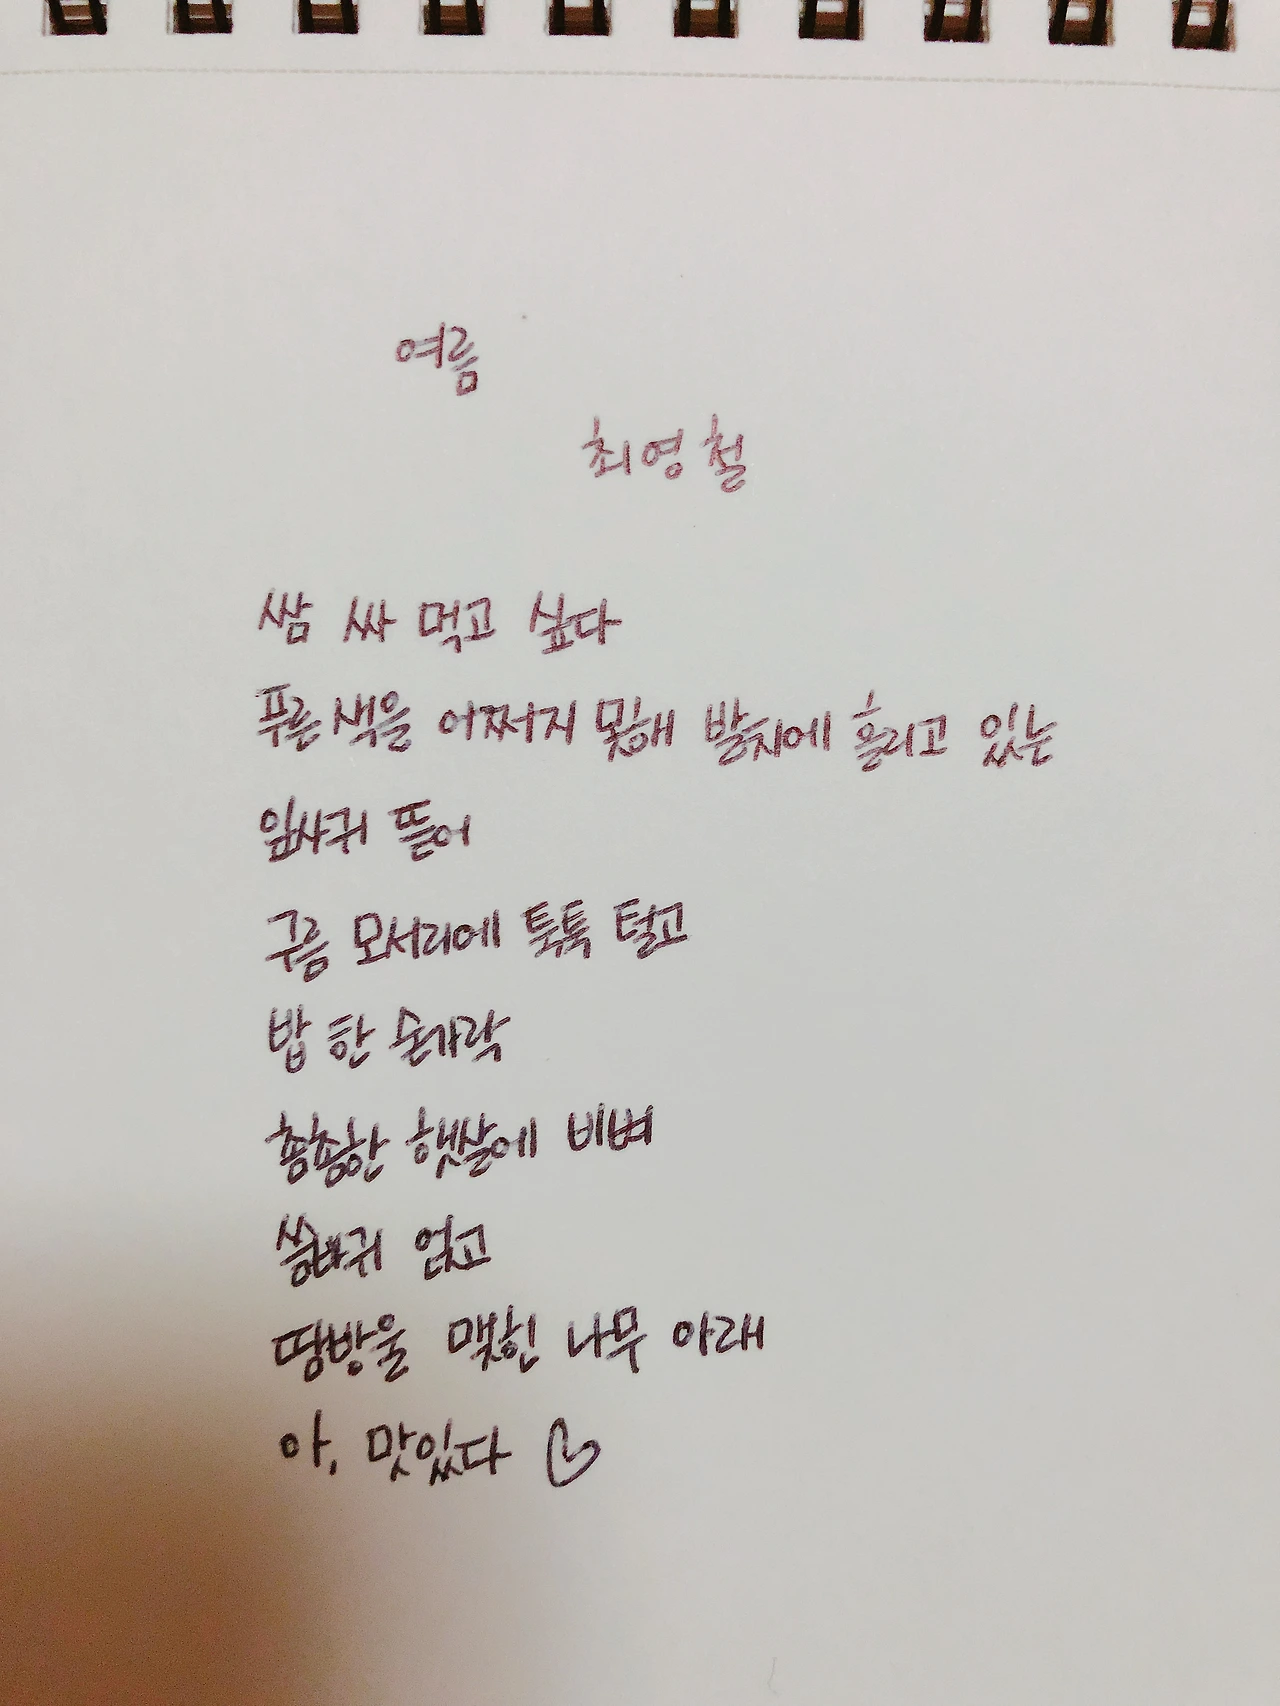 여름
최영철
쌈 싸 먹고 싶다
푸른색을 어쩌지 못해 발치에 흘리고 있는
잎사귀 뜯어
구름 모서리에 툭툭 털고
밥 한 숟가락
촘촘한 햇살에 비벼
씀바귀 얹고
땀방울 맺힌 나무 아래
아, 맛있다 ♡